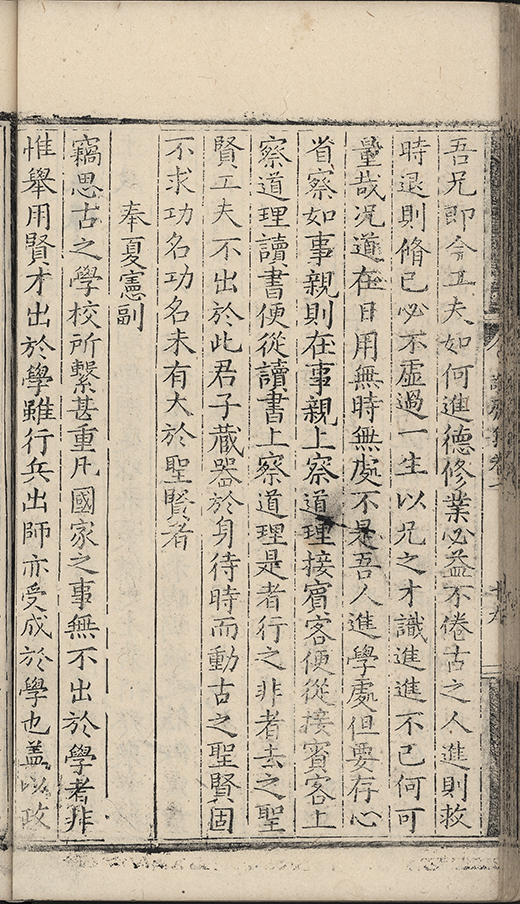 吾兄即今工夫如何進德修業必益不倦古之人進則救
時退則脩己必不虛過一生以兄之才識進進不已何可
量哉况道在日用無時無處不是吾人進學處但要存心
省察如事親則在事親上察道理接賓客便從接賓客上
察道理讀書便從讀書上察道理是者行之非者去之聖
賢工夫不出於此君子藏器於身待時而動古之聖賢固
不求功名功名未有大於聖賢者
奉夏憲副
竊思古之學校所繫甚重凡國家之事無不出於學者非
惟舉用賢才出於學雖行兵出師亦受成於學也盖以政